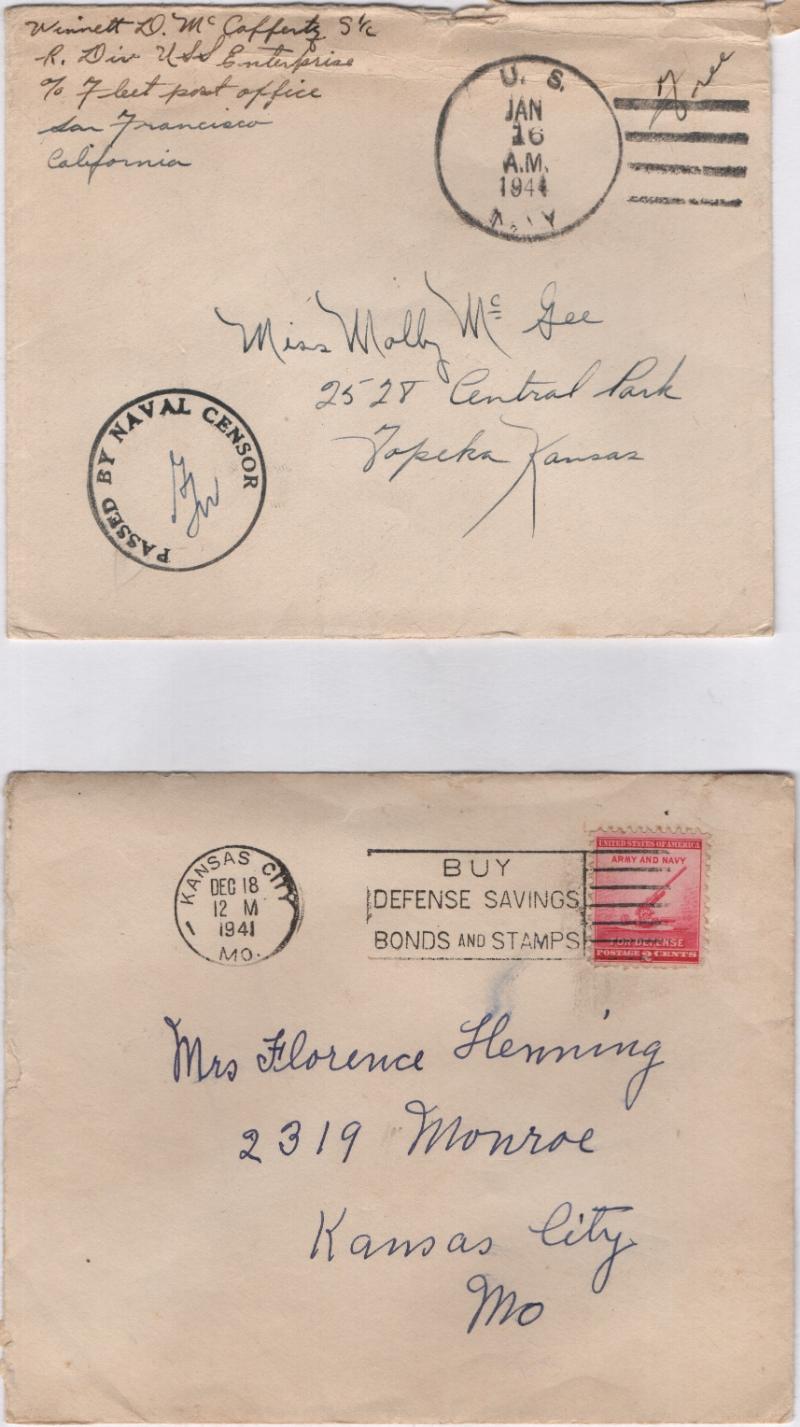 Winnett D. McCafferty S1/c
R. Div USS Enterprise
c/o Fleet post office
San Francisco
California
U. S.
JAN
16
A.M.
1944
Free
Miss Molly Mc Gee
2528 Central Park
Topeka Kansas
PASSED BY NAVAL CENSOR
KANSAS CITY
DEC 18
12 M
1941
MO.
1
BUY
DEFENSE SAVINGS
BONDS AND STAMPS
UNITED STATES OF AMERICA
ARMY AND NAVY
FOR DEFENSE
POSTAGE 2 CENTS
Mrs Florence Henning
2319 Monroe
Kansas City
Mo